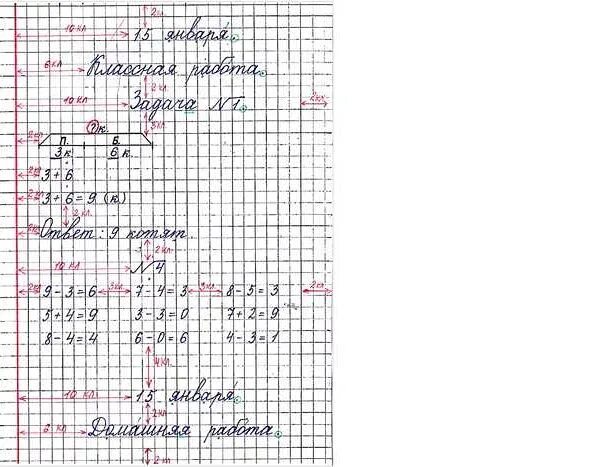 2 кл
10 кл 15 января.
6 кл Классная работа.
2 кл
10 кл Задача №1. 2 кл
3 кл
? к.
2 кл П. Б.
3 к. 6 к.
2 кл 3 + 6
2 кл 3 + 6 = 9 (к.)
2 кл.
2 кл Ответ: 9 котят.
2 кл
10 кл №4
2 кл 9 - 3 = 6 3 кл 7 - 4 = 3 3 кл 8 - 5 = 3 2 кл
5 + 4 = 9 3 - 3 = 0 7 + 2 = 9
8 - 4 = 4 6 - 0 = 6 4 - 3 = 1
4 кл.
10 кл. 15 января.
2 кл
6 кл Домашняя работа.
2 кл